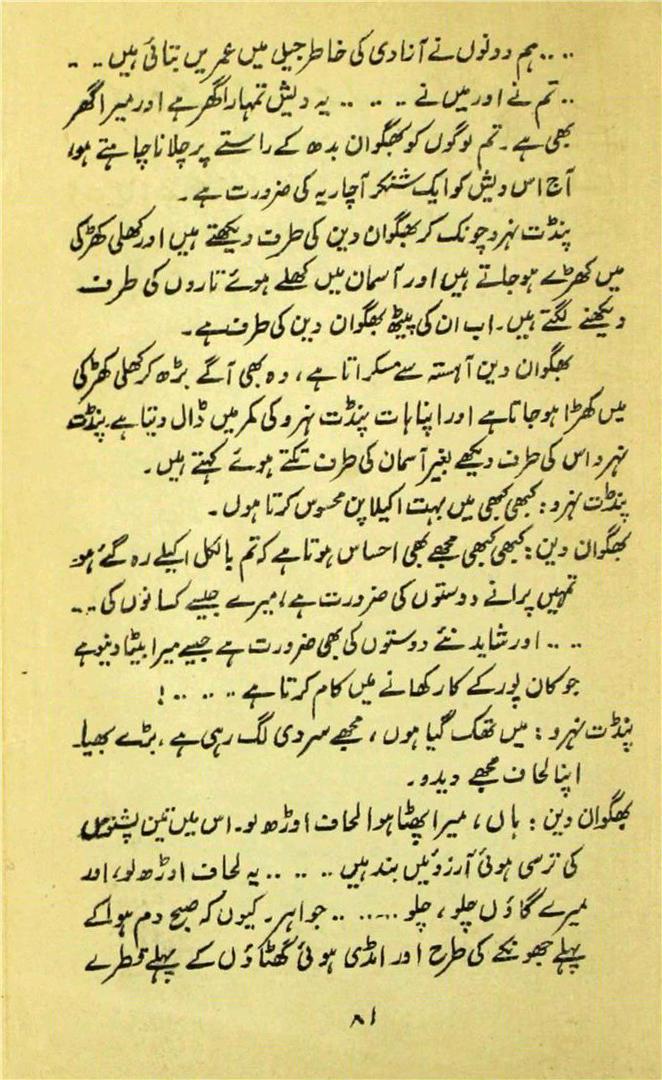 ۔۔۔۔ ہم دونوں نے آزادی کی خاطر جیل میں عمریں بتائی ہیں ۔۔ ۔۔
۔۔ تم نے اور میں نے ۔۔ ۔۔ ۔۔ یہ دیش تمہارا گھر ہے اور میرا گھر
بھی ہے۔ تم لوگوں کو بھگوان بدھ کے راستے پر چلانا چاہتے ہو،
آج اس دیش کو ایک شنکر آچاریہ کی ضرورت ہے۔
پنڈت نہرو چونک کر بھگوان دین کی طرف دیکھتے ہیں اور کھلی کھڑکی
میں کھڑے ہو جاتے ہیں اور آسمان میں کھلے ہوئے تاروں کی طرف
دیکھنے لگتے ہیں۔ اب ان کی پیٹھ بھگوان دین کی طرف ہے۔
بھگوان دین آہستہ سے مسکراتا ہے، وہ بھی آگے بڑھ کر کھلی کھڑکی
میں کھڑا ہو جاتا ہے اور اپنا ہات پنڈت نہرو کی کمر میں ڈال دیتا ہے۔ پنڈت
نہرو اس کی طرف دیکھے بغیر آسمان کی طرف تکتے ہوئے کہتے ہیں۔
پنڈت نہرو: کبھی کبھی میں بہت اکیلا پن محسوس کرتا ہوں۔
بھگوان دین: کبھی کبھی مجھے بھی احساس ہوتا ہے کہ تم بالکل اکیلے رہ گئے ہو
تمہیں پرانے دوستوں کی ضرورت ہے، میرے جیسے کسانوں کی ۔۔۔
۔۔۔ اور شاید نئے دوستوں کی بھی ضرورت ہے جیسے میرا بیٹا دینو ہے
جو کان پور کے کارکھانے میں کام کرتا ہے ۔۔ ۔۔ ۔۔!
پنڈت نہرو: میں تھک گیا ہوں، مجھے سردی لگ رہی ہے۔ بڑے بھیا
اپنا لحاف مجھے دیدو۔
بھگوان دین: ہاں، میرا پھٹا ہوا لحاف اوڑھ لو۔ اس میں تین پشتوں
کی ترسی ہوئی آرزوئیں بند ہیں ۔۔ ۔۔ ۔۔ یہ لحاف اوڑھ لو، اور
میرے گاؤں چلو، چلو ۔۔۔۔۔ ۔۔ جواہر۔ کیوں کہ صبح دم ہوا کے
پہلے جھونکے کی طرح اور امڈی ہوئی گھٹاؤں کے پہلے قطرے
۸۱